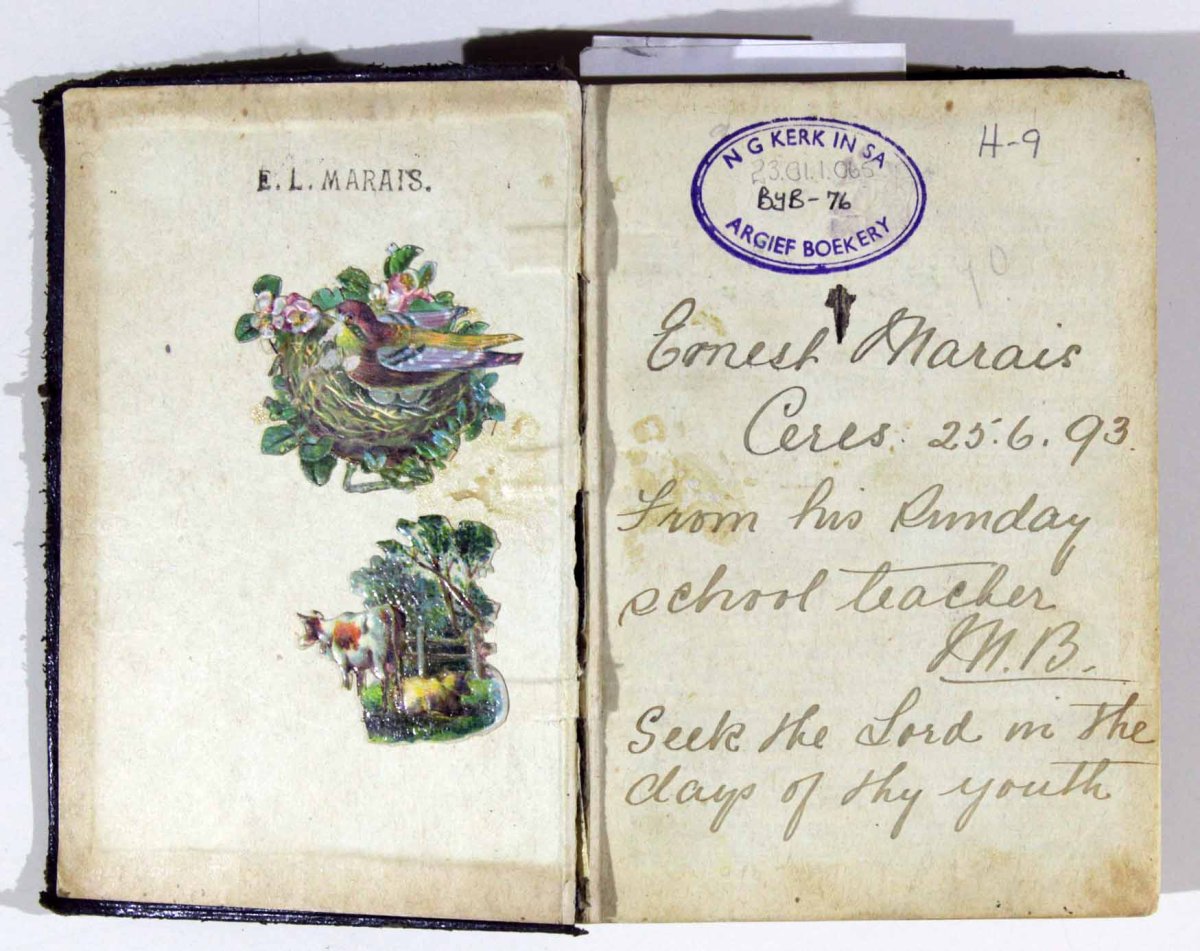 E. L. MARAIS.
N G KERK IN SA
BYB-76
ARGIEF BOEKERY
H-9
Ernest Marais
Ceres. 25.6.93.
From his Sunday
school teacher
M.B.
Seek the Lord in the
days of thy youth